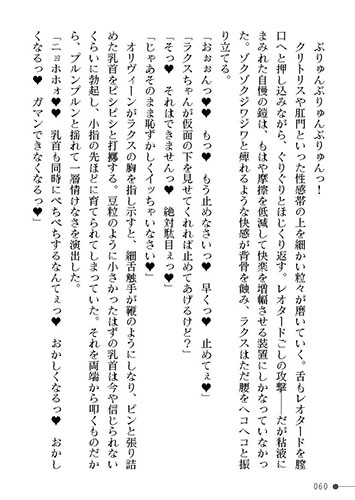 ぶりゅんぶりゅんぶりゅんっ！
クリトリスや肛門といった性感帯の上を細かい粒々が磨いていく。舌もレオタードを膣
口へと押し込みながら、ぐりぐりとほじくり返す。レオタードごしの攻撃――だが粘液に
まみれた自慢の鎧は、もはや摩擦を低減して快楽を増幅させる装置にしかなっていなかっ
た。ゾクゾクジワジワと痺れるような快感が背骨を蝕み、ラクスはただ腰をヘコヘコと振
り立てる。
「おぉぉんっ♥　もっ♥　もう止めなさいっ♥　早くっ♥　止めてぇ♥」
「ラクスちゃんが仮面の下を見せてくれれば止めてあげるけど？」
「そっ♥　それはできませんっ♥　絶対駄目ぇっ♥」
「じゃあそのまま恥ずかしくイッちゃいなさい♥」
オリヴィーンがラクスの胸を指し示すと、細舌触手が鞭のようにしなり、ピンと張り詰
めた乳首をピシピシと打擲する。豆粒のように小さかったはずの乳首は今や信じられない
くらいに勃起し、小指の先ほどに育てられてしまっていた。それを両端から叩くものだか
ら、プルンプルンと揺れて一層情けなさを演出した。
「ニョホホォ♥♥　乳首も同時にぺちぺちするなんてぇっ♥　おかしくなるっ♥　おかし
くなるっ♥　ガマンできなくなるっ♥」
060